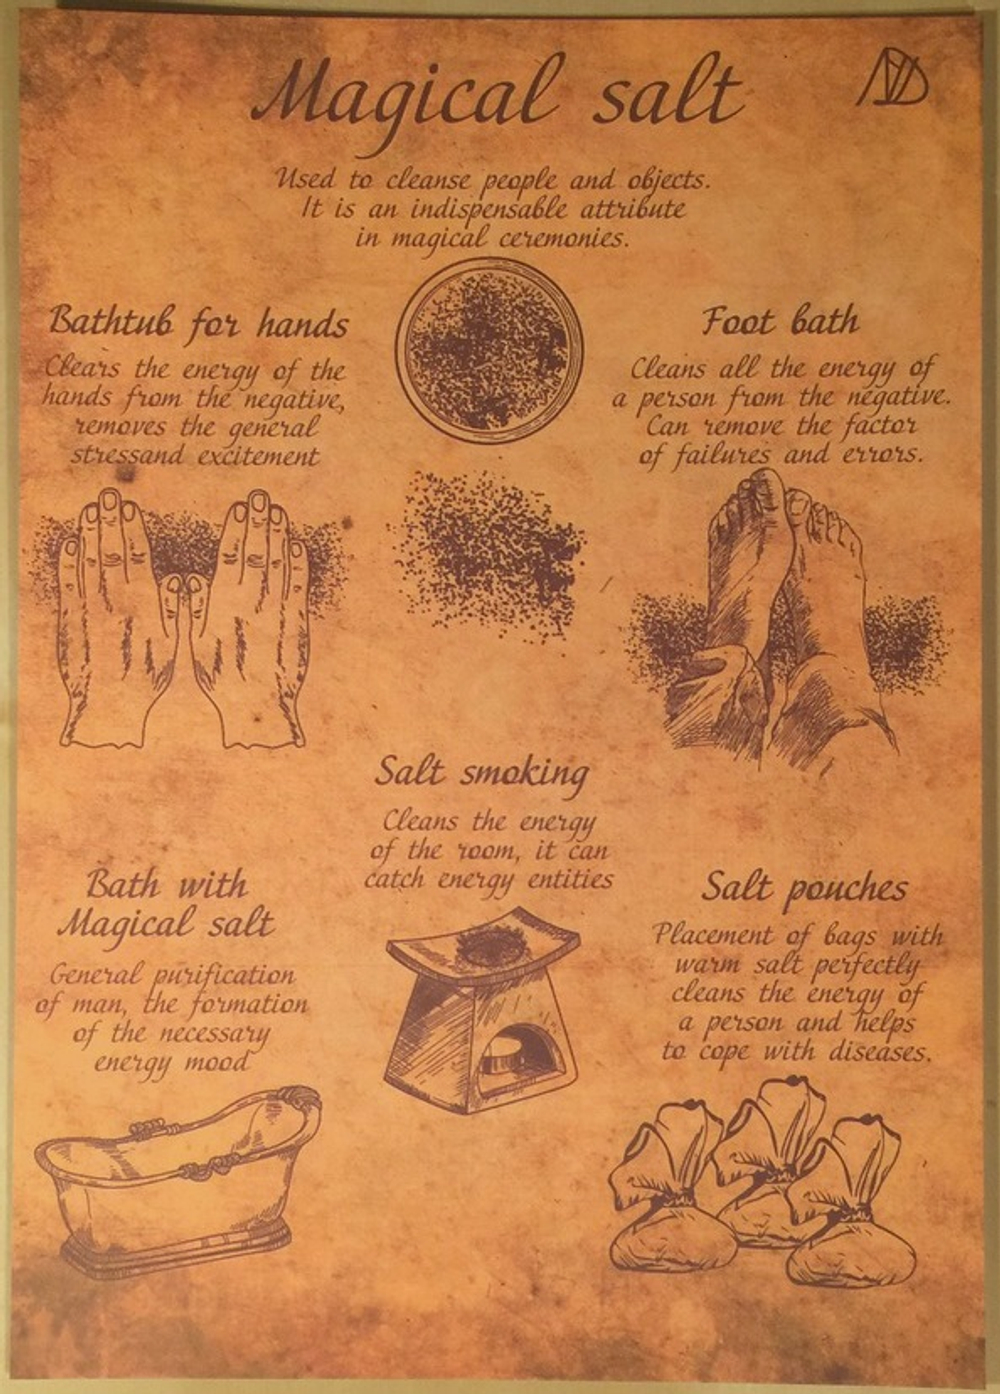 Magical salt
Used to cleanse people and objects.
It is an indispensable attribute
in magical ceremonies.
Bathtub for hands
Clears the energy of the
hands from the negative,
removes the general
stressand excitement
Foot bath
Cleans all the energy of
a person from the negative.
Can remove the factor
of failures and errors.
Salt smoking
Cleans the energy
of the room, it can
catch energy entities
Bath with
Magical salt
General purification
of man, the formation
of the necessary
energy mood
Salt pouches
Placement of bags with
warm salt perfectly
cleans the energy of
a person and helps
to cope with diseases.